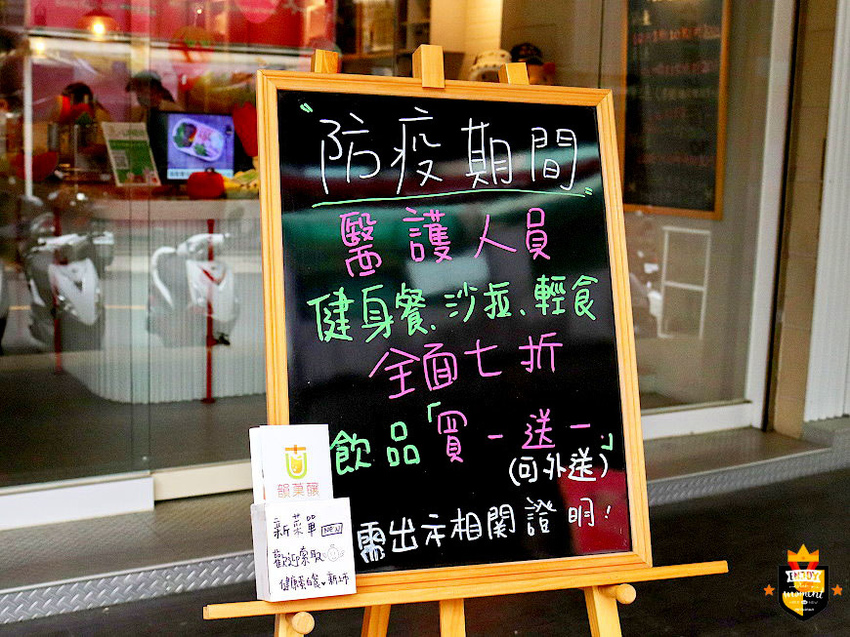 "防疫期間"
醫護人員
健身餐、沙拉、輕食
全面七折
飲品「買一送一」
(可外送)
需出示相關證明!
韻菓釀
新菜單 NEW
歡迎索取
新上市
ENJOY
moment